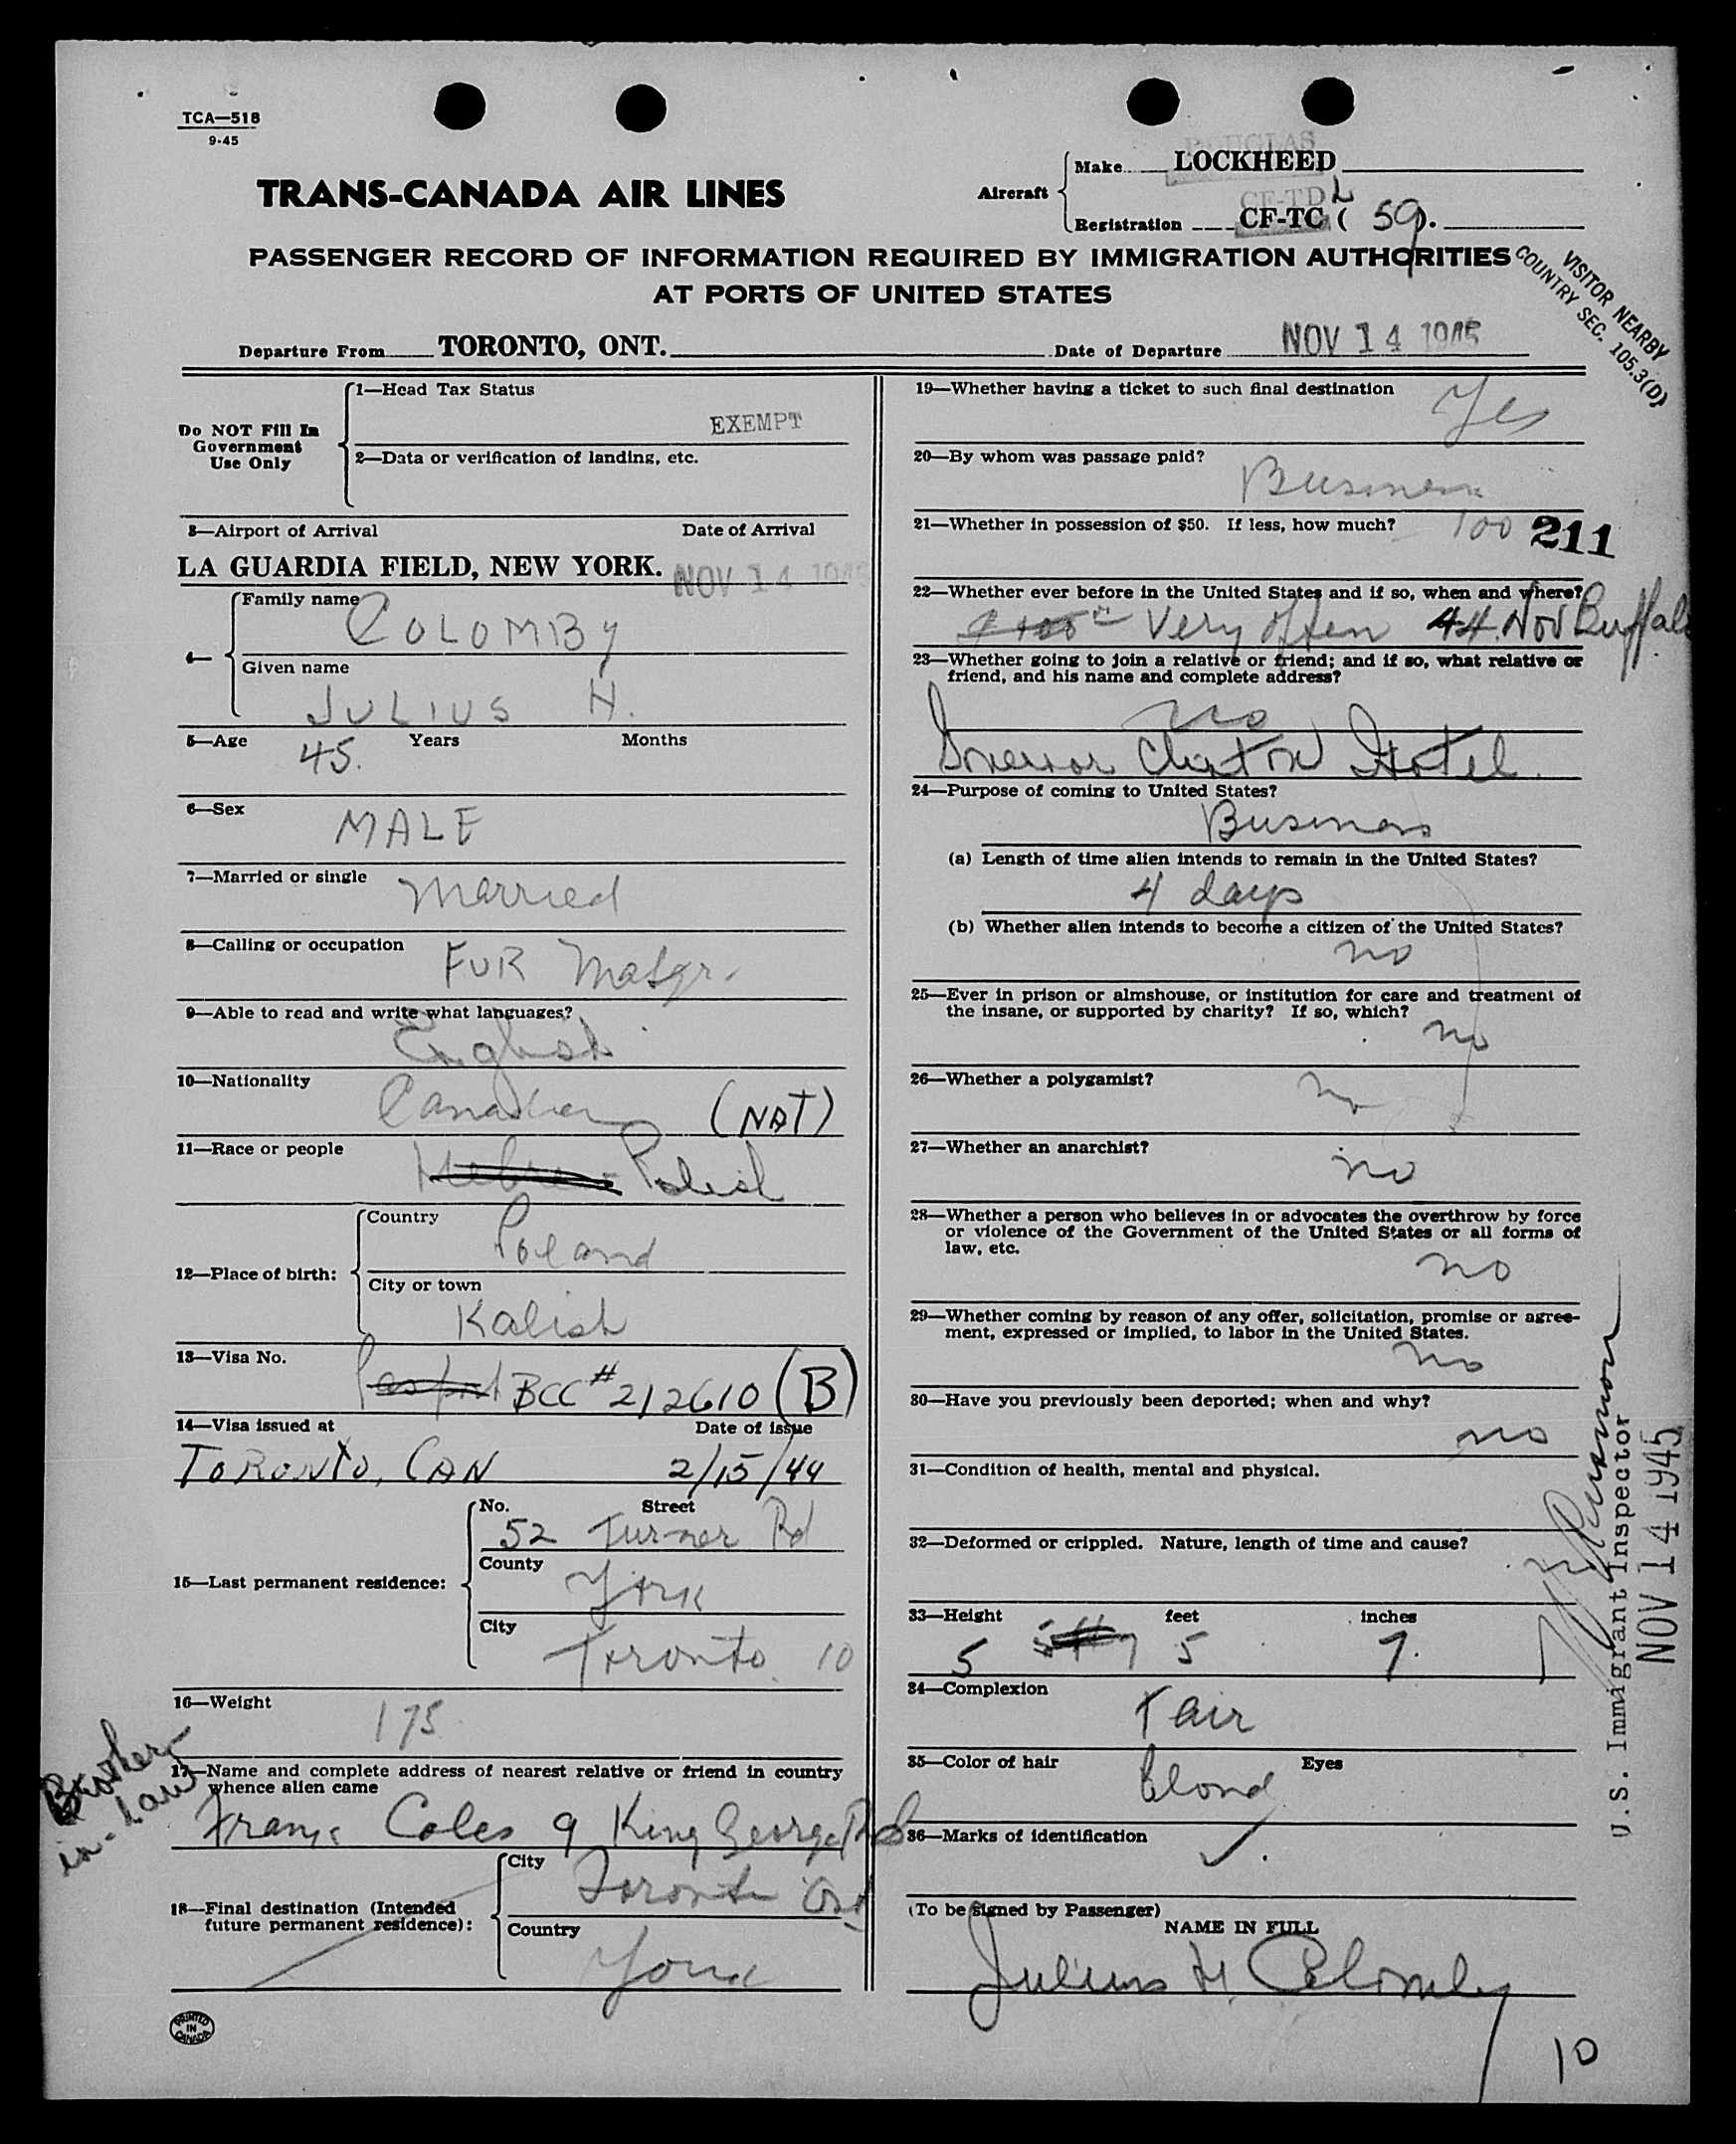 TCA—518
9-45
TRANS-CANADA AIR LINES
Aircraft
DOUGLAS
Make LOCKHEED
CF-TD L
Registration CF-TC ( 59).
PASSENGER RECORD OF INFORMATION REQUIRED BY IMMIGRATION AUTHORITIES
AT PORTS OF UNITED STATES
VISITOR NEARBY
COUNTRY SEC. 105.3(D)
Departure From TORONTO, ONT. Date of Departure NOV 14 1945
Do NOT Fill In
Government
Use Only
1—Head Tax Status
EXEMPT
2—Data or verification of landing, etc.
3—Airport of Arrival Date of Arrival
LA GUARDIA FIELD, NEW YORK. NOV 14 1945
4—
Family name
COLOMBy
Given name
JULIUS H.
5—Age 45. Years Months
6—Sex
MALE
7—Married or single
Married
8—Calling or occupation
FUR Mafgr.
9—Able to read and write what languages?
English
10—Nationality
Canadian (NAT)
11—Race or people
Hebrew Polish
12—Place of birth:
Country
Poland
City or town
Kalish
13—Visa No.
Passport BCC #212610 (B)
14—Visa issued at Date of issue
TORONTO, CAN 2/15/44
15—Last permanent residence:
No. Street
52 Turner Rd
County
York
City
Toronto 10
16—Weight
175
Brother-
in-Law
17—Name and complete address of nearest relative or friend in country
whence alien came
Frank Coles 9 King George Rd
18—Final destination (Intended
future permanent residence):
City
Toronto Ont
Country
York
PRINTED
IN
CANADA
19—Whether having a ticket to such final destination
Yes
20—By whom was passage paid?
Business
21—Whether in possession of $50. If less, how much? 100 211
22—Whether ever before in the United States and if so, when and where?
Very often 44 Nov Buffalo
23—Whether going to join a relative or friend; and if so, what relative or
friend, and his name and complete address?
no
Governor Clinton Hotel.
24—Purpose of coming to United States?
Business
(a) Length of time alien intends to remain in the United States?
4 days
(b) Whether alien intends to become a citizen of the United States?
no
25—Ever in prison or almshouse, or institution for care and treatment of
the insane, or supported by charity? If so, which?
no
26—Whether a polygamist?
no
27—Whether an anarchist?
no
28—Whether a person who believes in or advocates the overthrow by force
or violence of the Government of the United States or all forms of
law, etc.
no
29—Whether coming by reason of any offer, solicitation, promise or agree-
ment, expressed or implied, to labor in the United States.
no
30—Have you previously been deported; when and why?
no
31—Condition of health, mental and physical.
32—Deformed or crippled. Nature, length of time and cause?
33—Height feet inches
5 5 7.
34—Complexion
Fair
35—Color of hair Eyes
blond
36—Marks of identification
(To be Signed by Passenger)
NAME IN FULL
Julius H. Colomby
U.S. Immigrant Inspector
NOV 14 1945
10